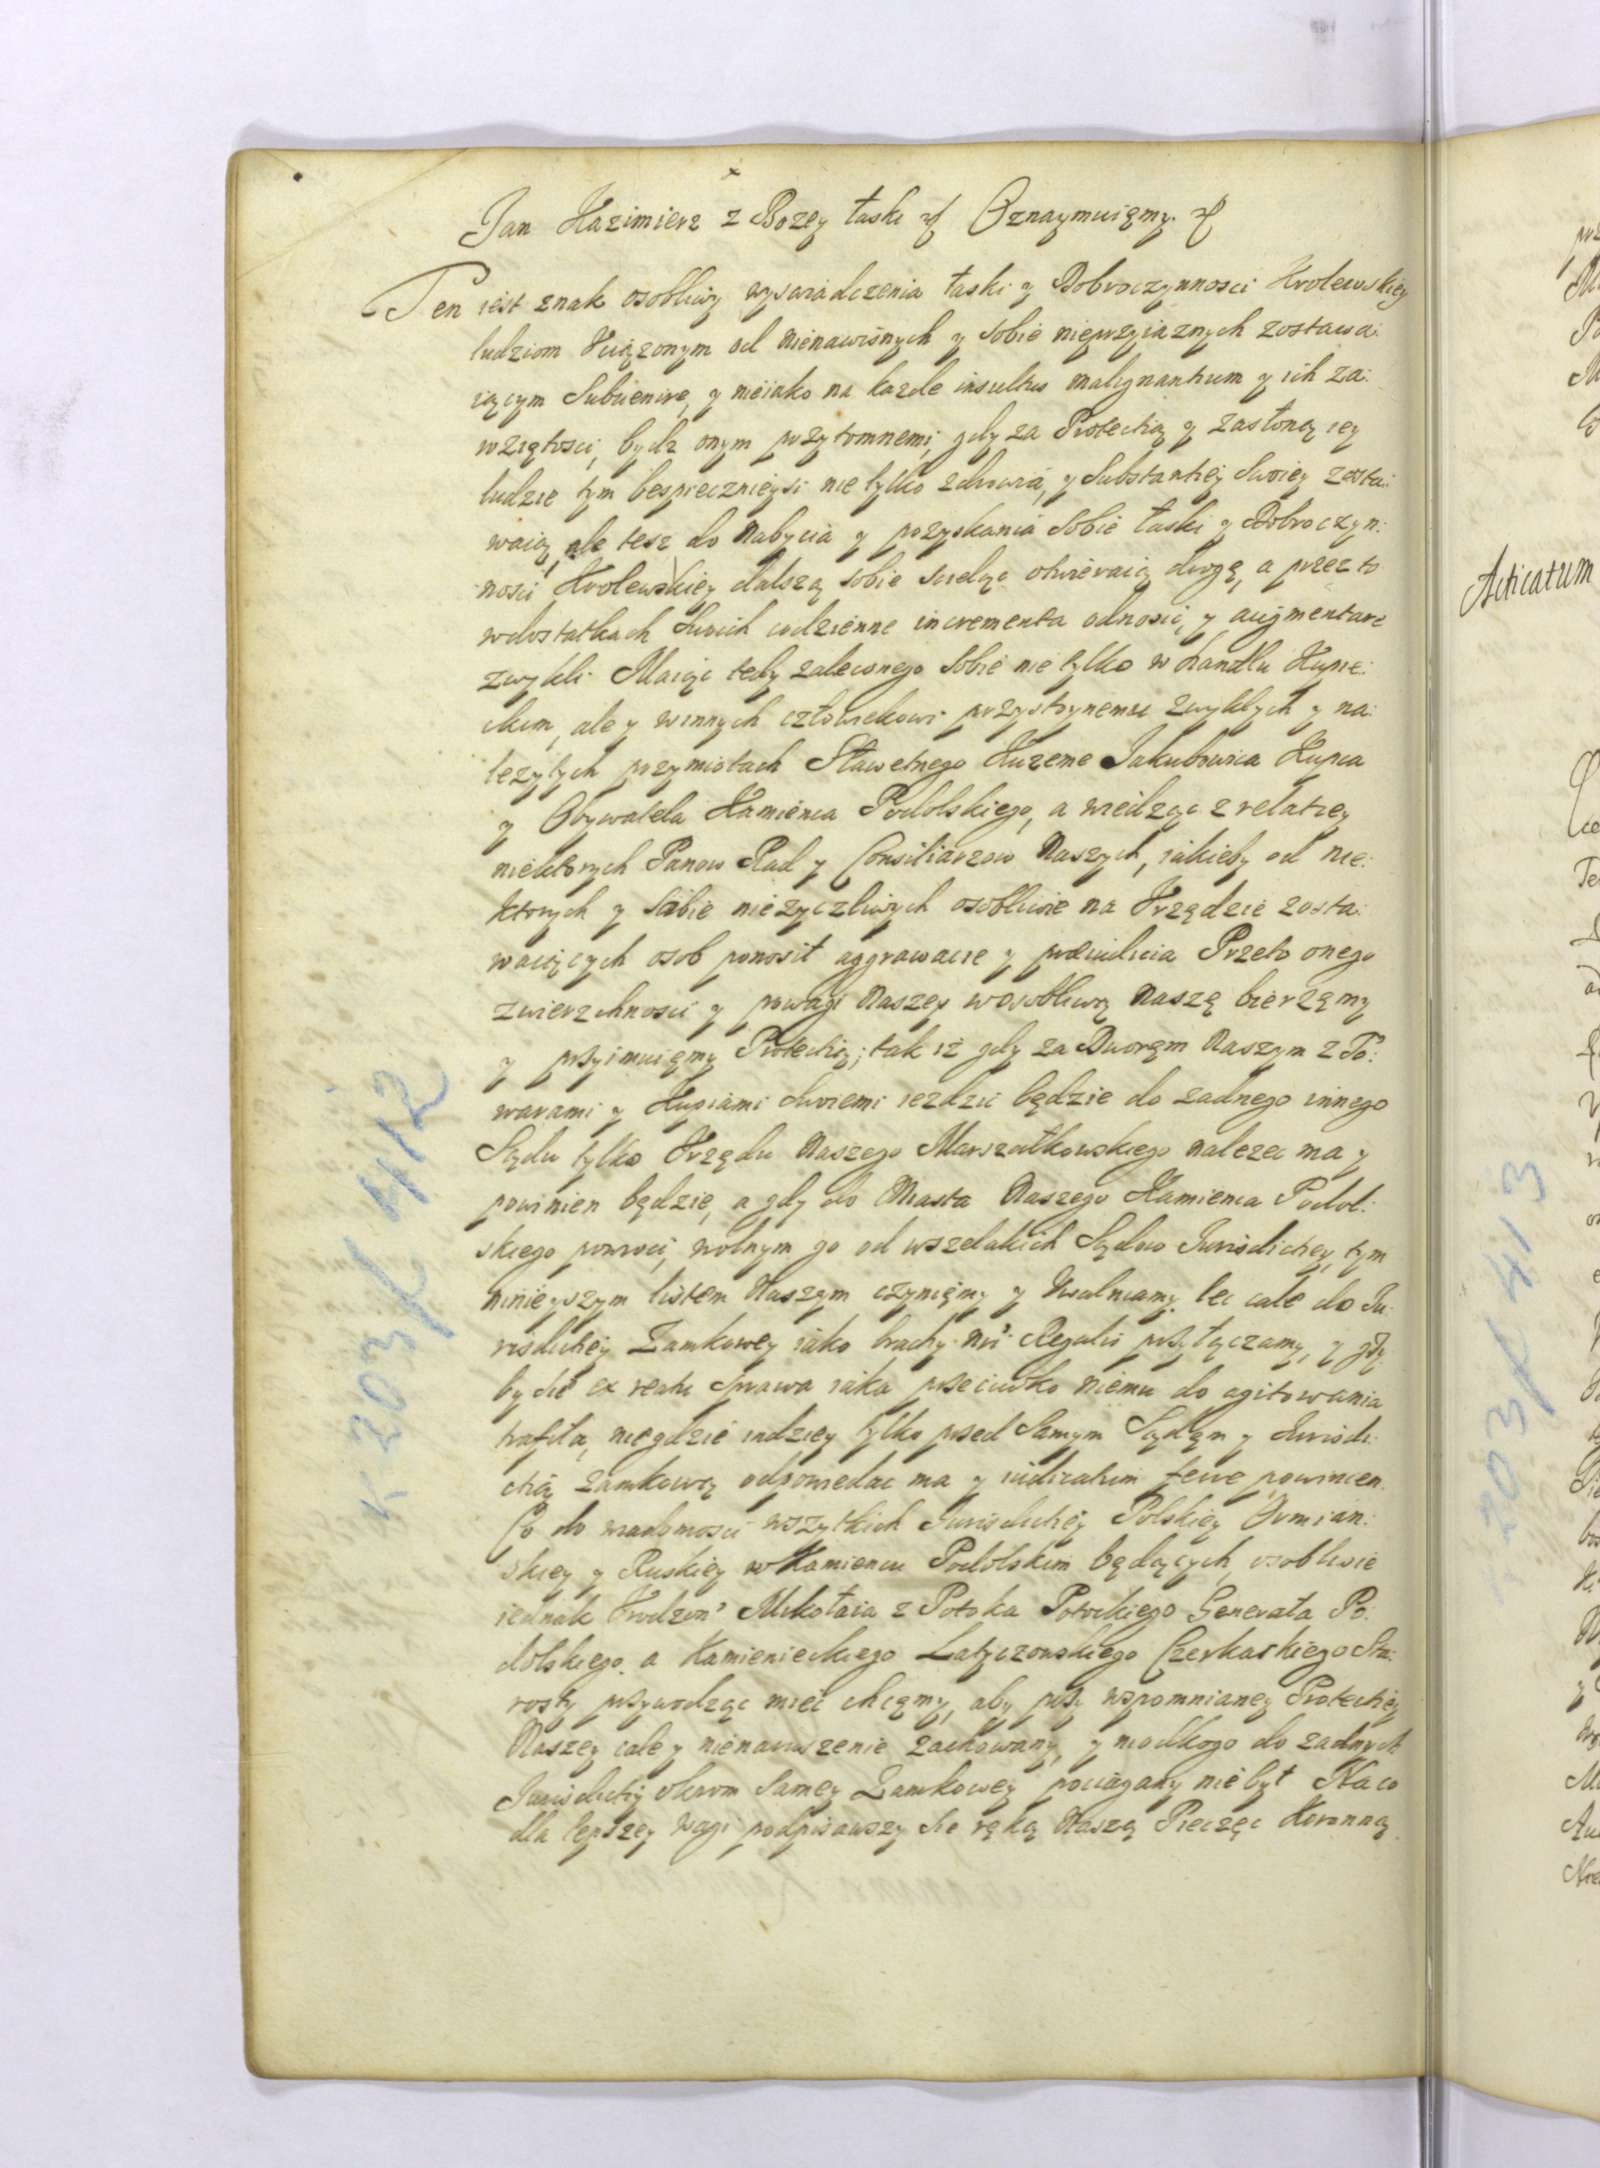 Jan Kazimierz z Bozey łaski Oznaymuięmy.
Ten iest znak osobliwy wyswiadczenia łaski y Dobroczynnosci Krolewskiey
ludziom Uciązonym od nienawisnych y sobie nieprzyiaznych zostawa:
iącym Subvenire, y nieiako na kazde insultus malignantium y ich za:
wziętosci, bydz onym przytomnemi, gdy za Protectią y zasłoną iey
ludzie tym bespiecznieysi nie tylko zdrowia, y Substantiey Swoiey zosta:
waią, ale tesz do nabycia y pozyskania sobie łaski y Dobroczyn:
nosci Krolewskiey dalszą sobie scieląc otwieraią drogę, a przez to
w dostatkach Swoich codzienne incrementa odnosic, y augmentare
zwykli. Maiąc tedy zaleconego sobie nie tylko w handlu Kupie:
ckim, ale y w innych człowiekowi przystoynemu zwykłych y na:
lezytych przymiotach Sławetnego Jakubowica Kupca
y Obywatela Kamienca Podolskiego, a wiedząc z relatiey
niektorych Panow Rad y Consiliarzow Naszych, iakieby od nie:
ktorych y sobie niezyczliwych osobliwie na Urzędzie zosta:
waiących osob ponosił aggrawacie y praeiudicia Przeto onego
zwierzchnosci y powagi Naszey w osobliwą Naszę bierzęmy
y przyimuięmy Protectią; tak iz gdy za Dworęm Naszym z To:
warami y Kupiami Swoiemi iezdzic będzie do zadnego innego
Sądu tylko Urzędu Naszego Marszałkowskiego nalezec ma y
powinien będzie, a gdy do Miasta Naszego Kamienca Podol:
skiego powroci, wolnym go od wszelakich Sądow Jurisdictiey, tym
ninieyszym listem Naszym czynięmy y Uwalniamy. lec cale do Ju:
risdictiey Zamkowey iako Regalis przyłączamy, y gdy
by sie ex reatu Sprawa iaka przeciwko niemu do agitowania
trafiła, niegdzie indziey tylko przed Samym Sądęm y Jurisdi:
ctią Zamkową odpowiedac ma y iudicatum ferre powinien.
Co do wiadomosci wszytkich Jurisdictiey Polskiey Ormian:
skiey y Ruskiey w Kamiencu Podolskim będących, osobliwie
iednak Urodzon' Mikołaia z Potoka Potockiego Generała Po:
dolskiego. a Kamienieckiego Latyczowskiego Czerkaskiego Sta:
rosty przywodząc miec chcęmy, aby przy wspomnianey Protectiey
Naszey cale y nienaruszenie zachowany, y niodkogo do zadnych
Jurisdictiy okrom Samey Zamkowey pociągany nie był Na co
dla lepszey wagi podpisawszy sie ręką Naszą Pieczęc Koronną
K 203/K 412
Acticatum
203/K 413